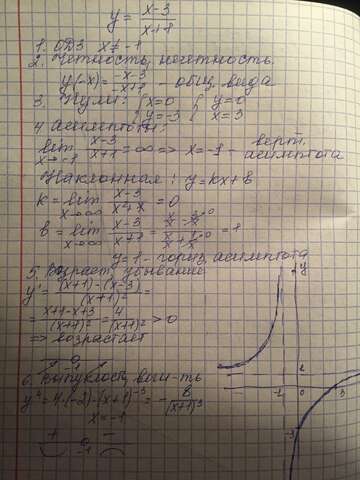 y = x-3 / x+1
1. ОДЗ x ≠ -1
2. Четность, нечетность.
y(-x) = -x-3 / -x+1 - общ. вида
3. Нули: { x=0 { y=0
{ y=-3 { x=3
4. Асимптоты:
lim x→-1 x-3 / x+1 = ∞ => x=-1 - верт. асимптота
Наклонная: y=kx+b
k = lim x→∞ x-3 / x²+x = 0
b = lim x→∞ x-3 / x+1 = = 1
y=1 - гориз. асимптота
5. Возраст, убывание
y' = (x+1)-(x-3) / (x+1)² =
= x+1-x+3 / (x+1)² = 4 / (x+1)² > 0
=> возрастает
-1
6. Выпуклость, вогн-ть
y'' = 4·(-2)·(x+1)⁻³ = - 8 / (x+1)³
x=-1
+ -
-1
y
1
-1 0 3
-3